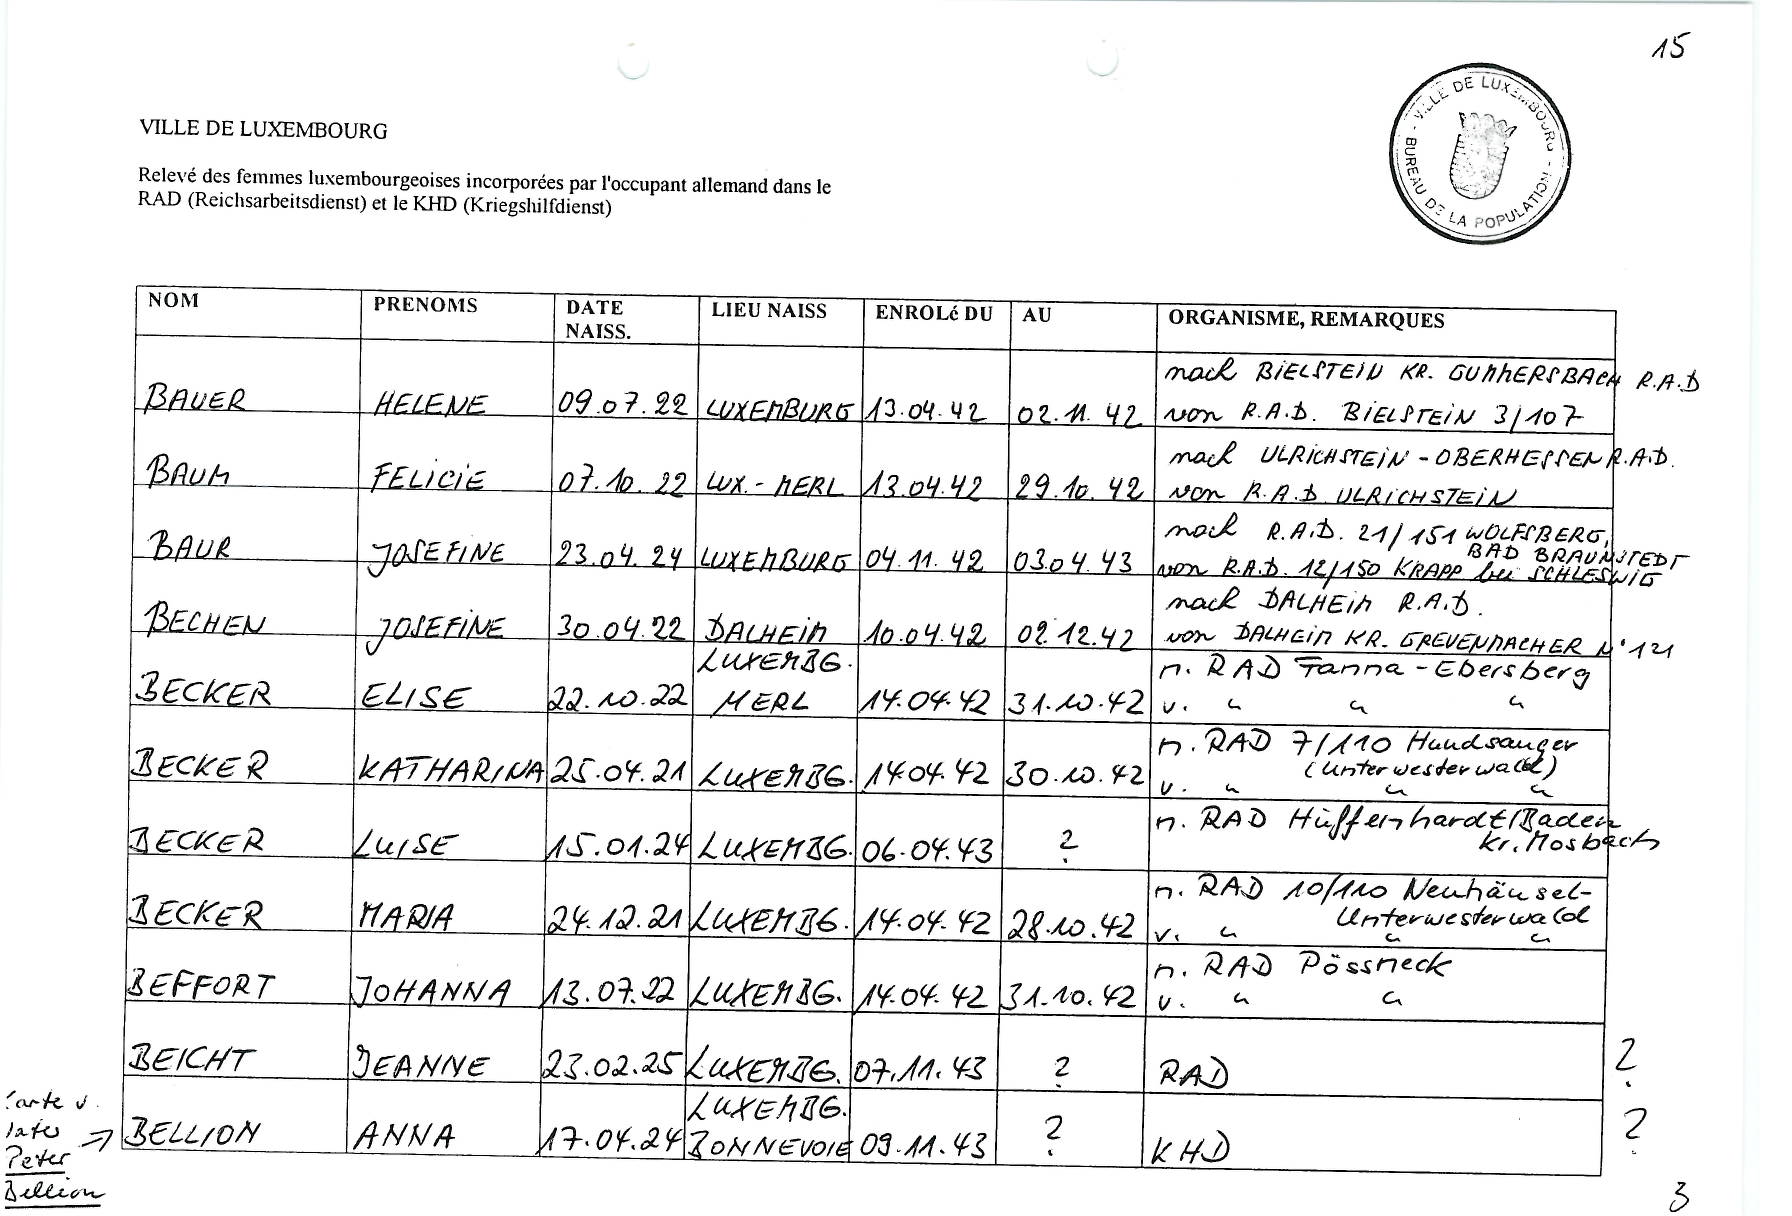 15
VILLE DE LUXEMBOURG - BUREAU DE LA POPULATION -
VILLE DE LUXEMBOURG
Relevé des femmes luxembourgeoises incorporées par l'occupant allemand dans le
RAD (Reichsarbeitsdienst) et le KHD (Kriegshilfdienst)
NOM PRENOMS DATE NAISS. LIEU NAISS ENROLé DU AU ORGANISME, REMARQUES
nach BIELSTEIN KR. GUMMERSBACH R.A.D
BAUER HELENE 09.07.22 LUXEMBURG 13.04.42 02.11.42 von R.A.D. BIELSTEIN 3/107
nach ULRICHSTEIN - OBERHESSEN R.A.D.
BAUM FELICIE 07.10.22 LUX.-MERL 13.04.42 29.10.42 von R.A.D ULRICHSTEIN
nach R.A.D. 21/151 WOLFSBERG,
BAD BRAUNSTEDT
BAUR JOSEFINE 23.04.24 LUXEMBURG 04.11.42 03.04.43 von R.A.D. 12/150 KRAPP bei SCHLESWIG
nach DALHEIM R.A.D.
BECHEN JOSEFINE 30.04.22 DALHEIM 10.04.42 02.12.42 von DALHEIM KR. GREVENMACHER N° 121
LUXEMBG. n. RAD Tanna - Ebersberg
BECKER ELISE 22.10.22 MERL 14.04.42 31.10.42 v. " " "
n. RAD 7/110 Hundsanger
(Unterwesterwald)
BECKER KATHARINA 25.04.21 LUXEMBG. 14.04.42 30.10.42 v. " " "
n. RAD Hüffenhardt/Baden
BECKER LUISE 15.01.24 LUXEMBG. 06.04.43 ? Kr. Mosbach
n. RAD 10/110 Neuhäusel-
Unterwesterwald
BECKER MARIA 24.12.21 LUXEMBG. 14.04.42 28.10.42 v. " " "
n. RAD Pössneck
BEFFORT JOHANNA 13.07.22 LUXEMBG. 14.04.42 31.10.42 v. " "
BEICHT JEANNE 23.02.25 LUXEMBG. 07.11.43 ? RAD ?
LUXEMBG.
BELLION ANNA 17.04.24 BONNEVOIE 09.11.43 ? KHD ?
Carte v.
Peter
Bellion
3